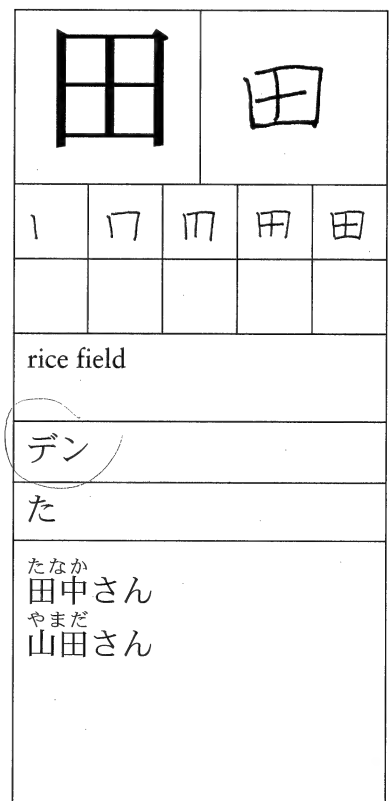 田 田
丨 冂 田 田
rice field
デン
た
たなか
田中さん
やまだ
山田さん